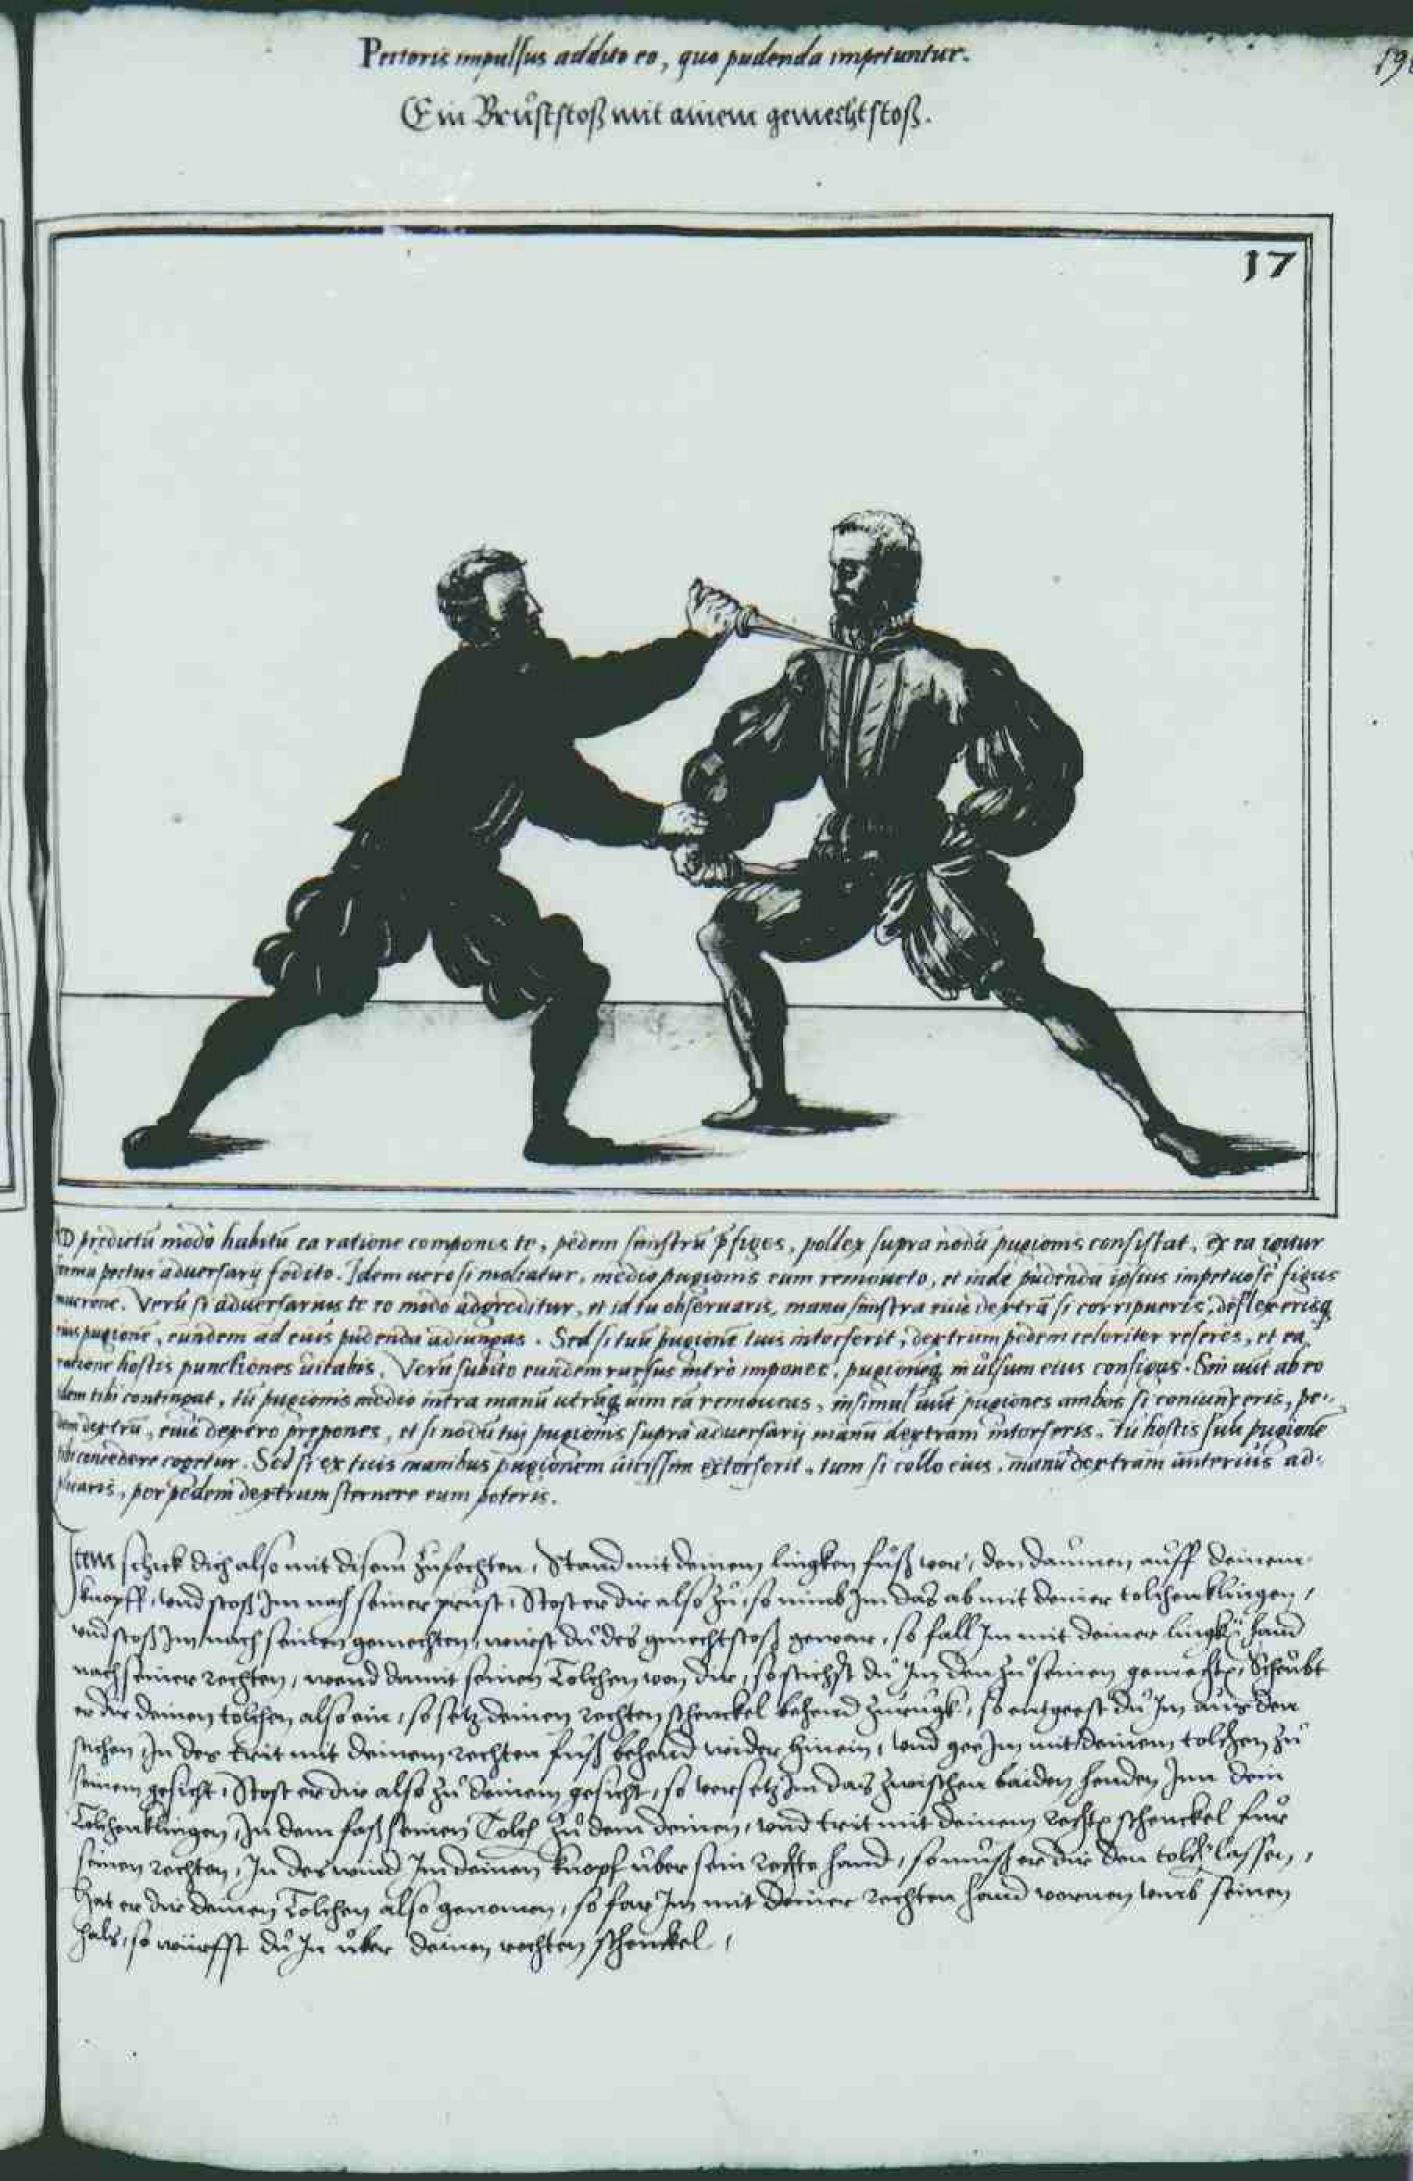 Pectoris impulsus addito eo, quo pudenda impetuntur.
19
Ein Brůststoß mit ainem gemechtstoß.
17
AD prędictũ modò habitũ ea ratione compones te, pedem sinistrũ p̃figes, pollex supra nodũ pugionis consistat, ex ea igitur
forma pectus adversarij fodito. Idem vero si moliatur, medio pugionis eum removeto, et inde pudenda ipsius impetuosè figes
mucrone. Verũ si adversarius te eo modo adgreditur, et id tu observaris, manu sinistra eius dextrã si corripueris, deflexerisq
eius pugionẽ, eundem ad eius pudenda adiungas. Sed si tuũ pugionẽ tuis intorserit, dextrum pedem celeriter referes, et ea
ratione hostis punctiones vitabis. Verũ subito eundem rursus intrò impones, pugionẽq in vulsum eius configes. Sin aũt ab eo
idem tibi contingat, tu pugionis medio intra manũ utrãq vim eã removeas, insimul aũt pugiones ambos si coniunxeris, pe-
dem dextrũ, eius dextro prepones, et si nodũ tuj pugionis supra adversarij manũ dextram intorseris. Tũ hostis suũ pugionẽ
tibi concedere cogetur. Sed si ex tuis manibus pugionem vicissim extorserit, tum si collo eius, manũ dextram anterius ad-
plicaris, per pedem dextrum sternere eum poteris.
Item schick dich also mit disem zůfechten, Stand mit deinem lingken fůß vor, den daumen auff deinem
knopff, und stoß Im nach seiner prust, Stost er dir also zů, so nimb Im das ab mit deiner tolchenklingen,
und stoß Im nach seinen gemechten, wirst dů des gmechtstoß gewar, so fall Im mit deiner lingkẽ hand
nach seiner rechten, wend damit seinen Tolchen von dir, so stichst dů Im den zů seinen gemechtẽ, Schrůbt
er dir deinen tolchen also ein, so setz deinen rechten schenckel behend zurugk, so entgeest dů Im aus den
stichen, In des trit mit deinem rechten fůß behend wider hinein, und gee Im mit deinem tolchen zů
seinem gesicht, Stost er dir also zů deinem gesicht, so versetz Im das zwischen baiden henden Inn dem
Tolchenklingen, In dem faß seinen Tolch zů dem deinen, und trit mit deinem rechtẽ schenckel fur
seinen rechten, In des wind Im deinen knopf über sein rechte hand, so můß er dir den tolchẽ lassen,
Hat er dir deinen Tolchen also genomen, so far Im mit deiner rechten hand vornen umb seinen
hals, so würfft dů In über deinen rechten schenckel.